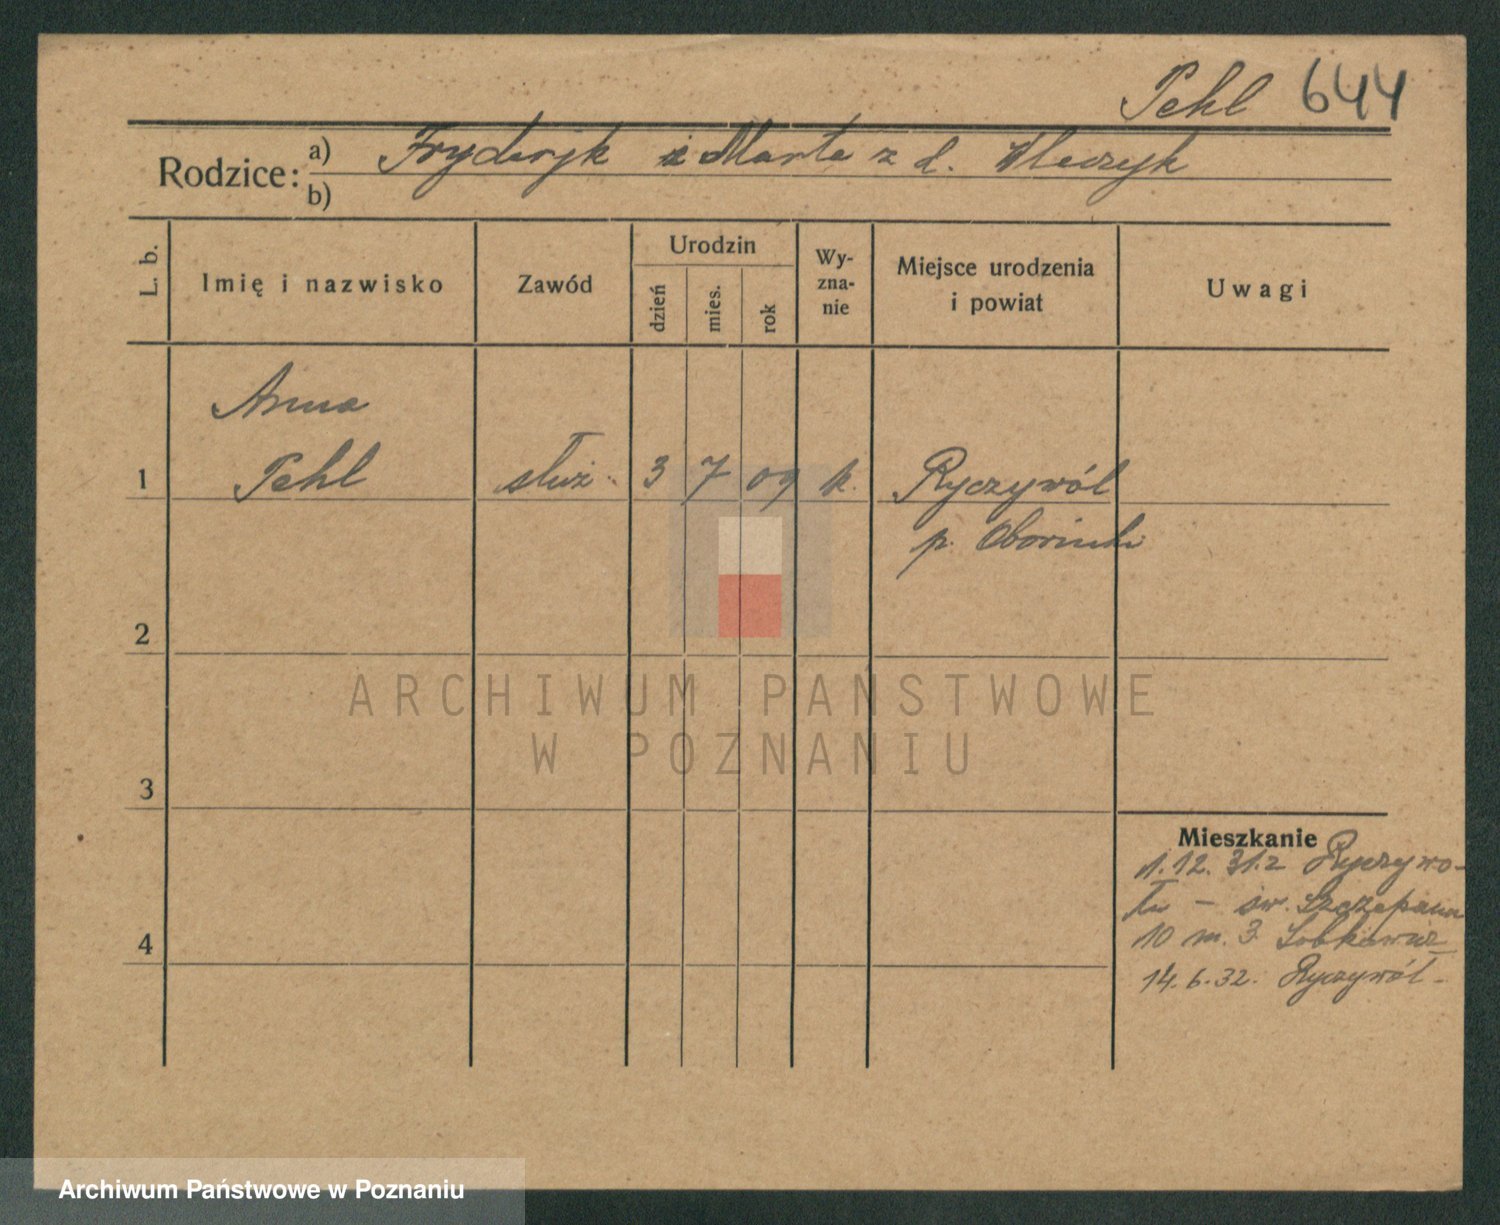 Pehl 644
Rodzice: a) Fryderyk i Marta z d.
b)
L. b.
Imię i nazwisko
Zawód
Urodzin
dzień
mies.
rok
Wy-
zna-
nie
Miejsce urodzenia
i powiat
Uwagi
Anna
1 Pehl służ. 3 7 09 k. Ryczywół
p. Obornicki
2
3
4
ARCHIWUM PAŃSTWOWE
W POZNANIU
Mieszkanie
1.12.31. z Ryczywo-
łu – św. Szczepana
10 m. 3
14.6.32. Ryczywół
Archiwum Państwowe w Poznaniu